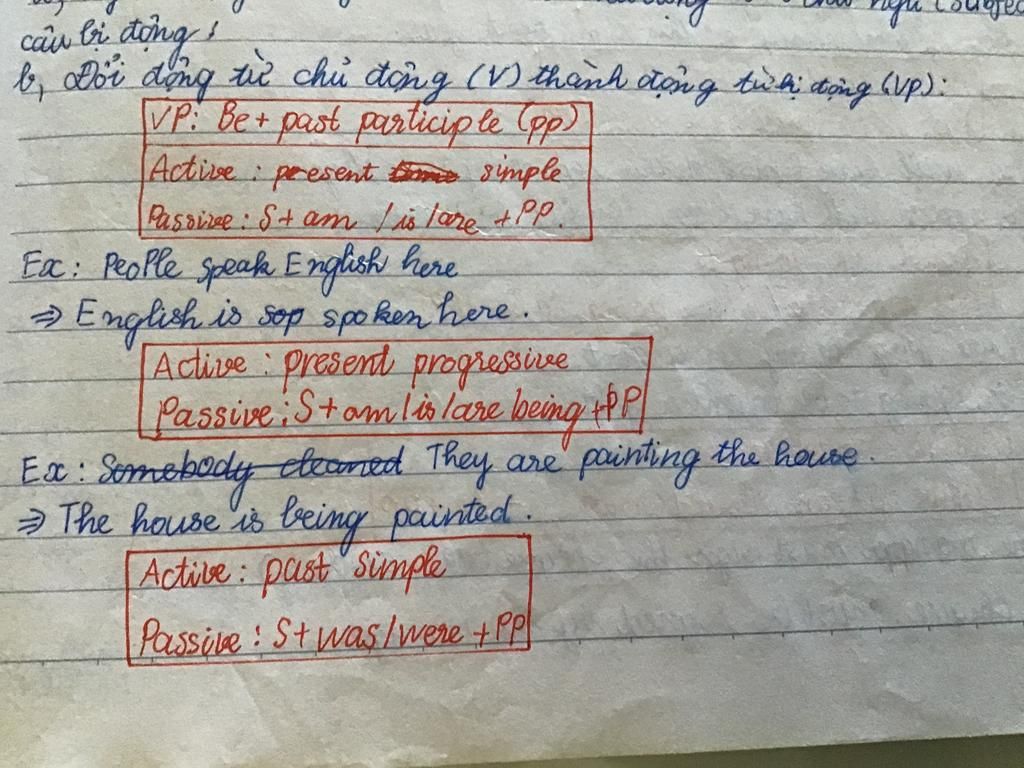 ngữ (Subjec
câu bị động:
b, Đổi động từ chủ động (V) thành động từ bị động (VP):
VP: Be + past participle (pp)
Active : present simple
Passive : S + am / is / are + PP.
Ex : PeoPle speak English here
⇒ English is sop spoken here.
Active : present progressive
Passive : S + am / is / are being + PP
Ex : Somebody cleaned They are painting the house.
⇒ The house is being painted.
Active : past simple
Passive : S + was / were + PP